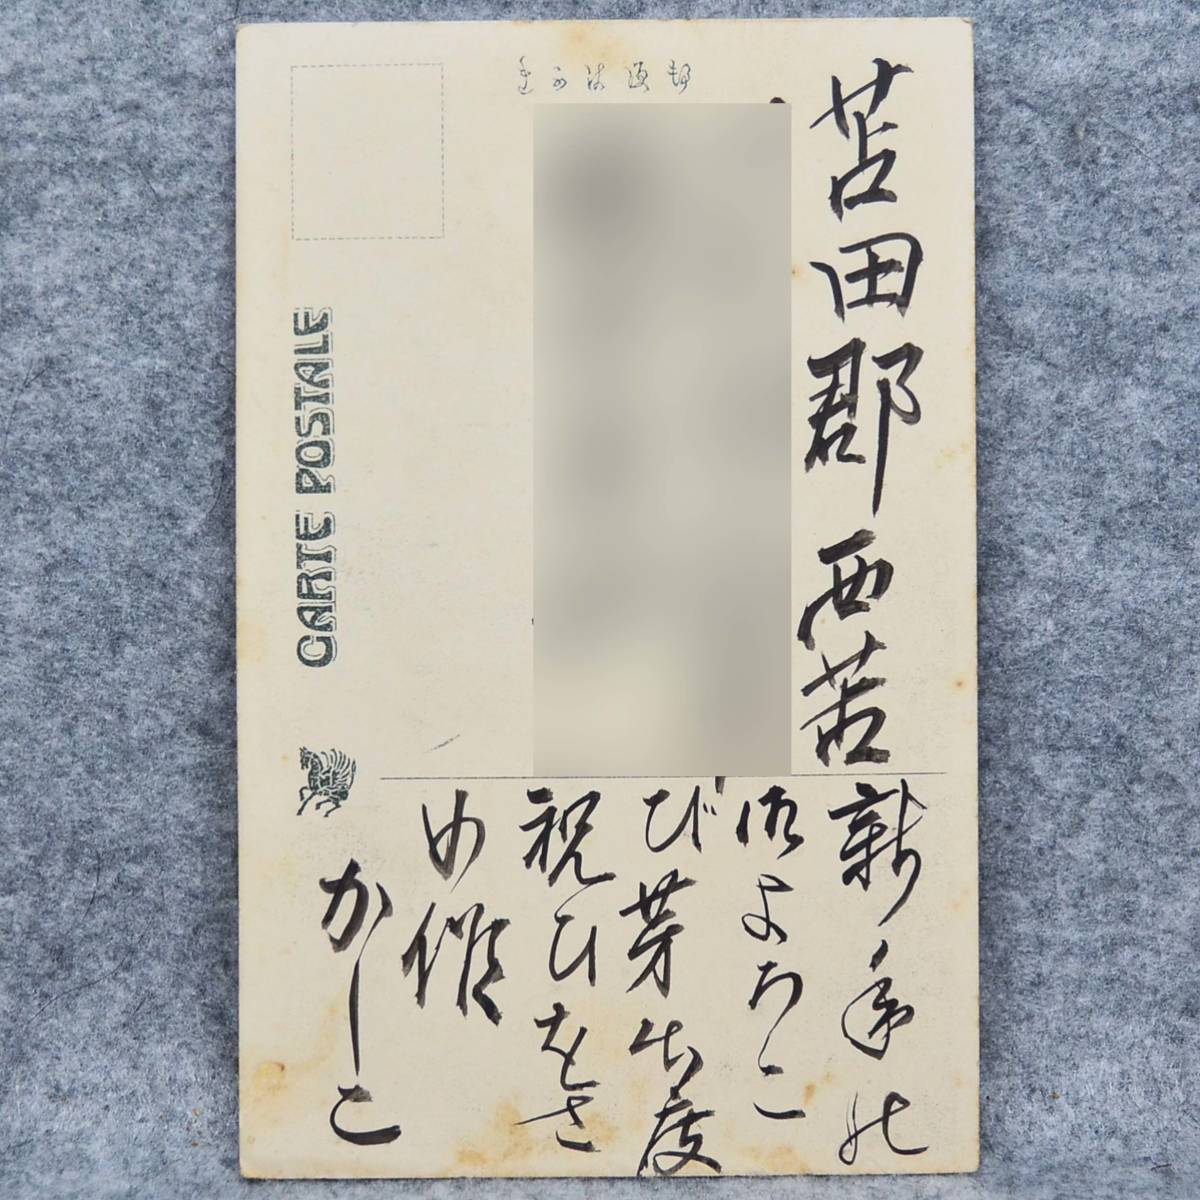 きかは便郵
CARTE POSTALE
苫田郡西苫
新年の
御よろこ
び芽出度
祝ひをさ
め候
かしこ